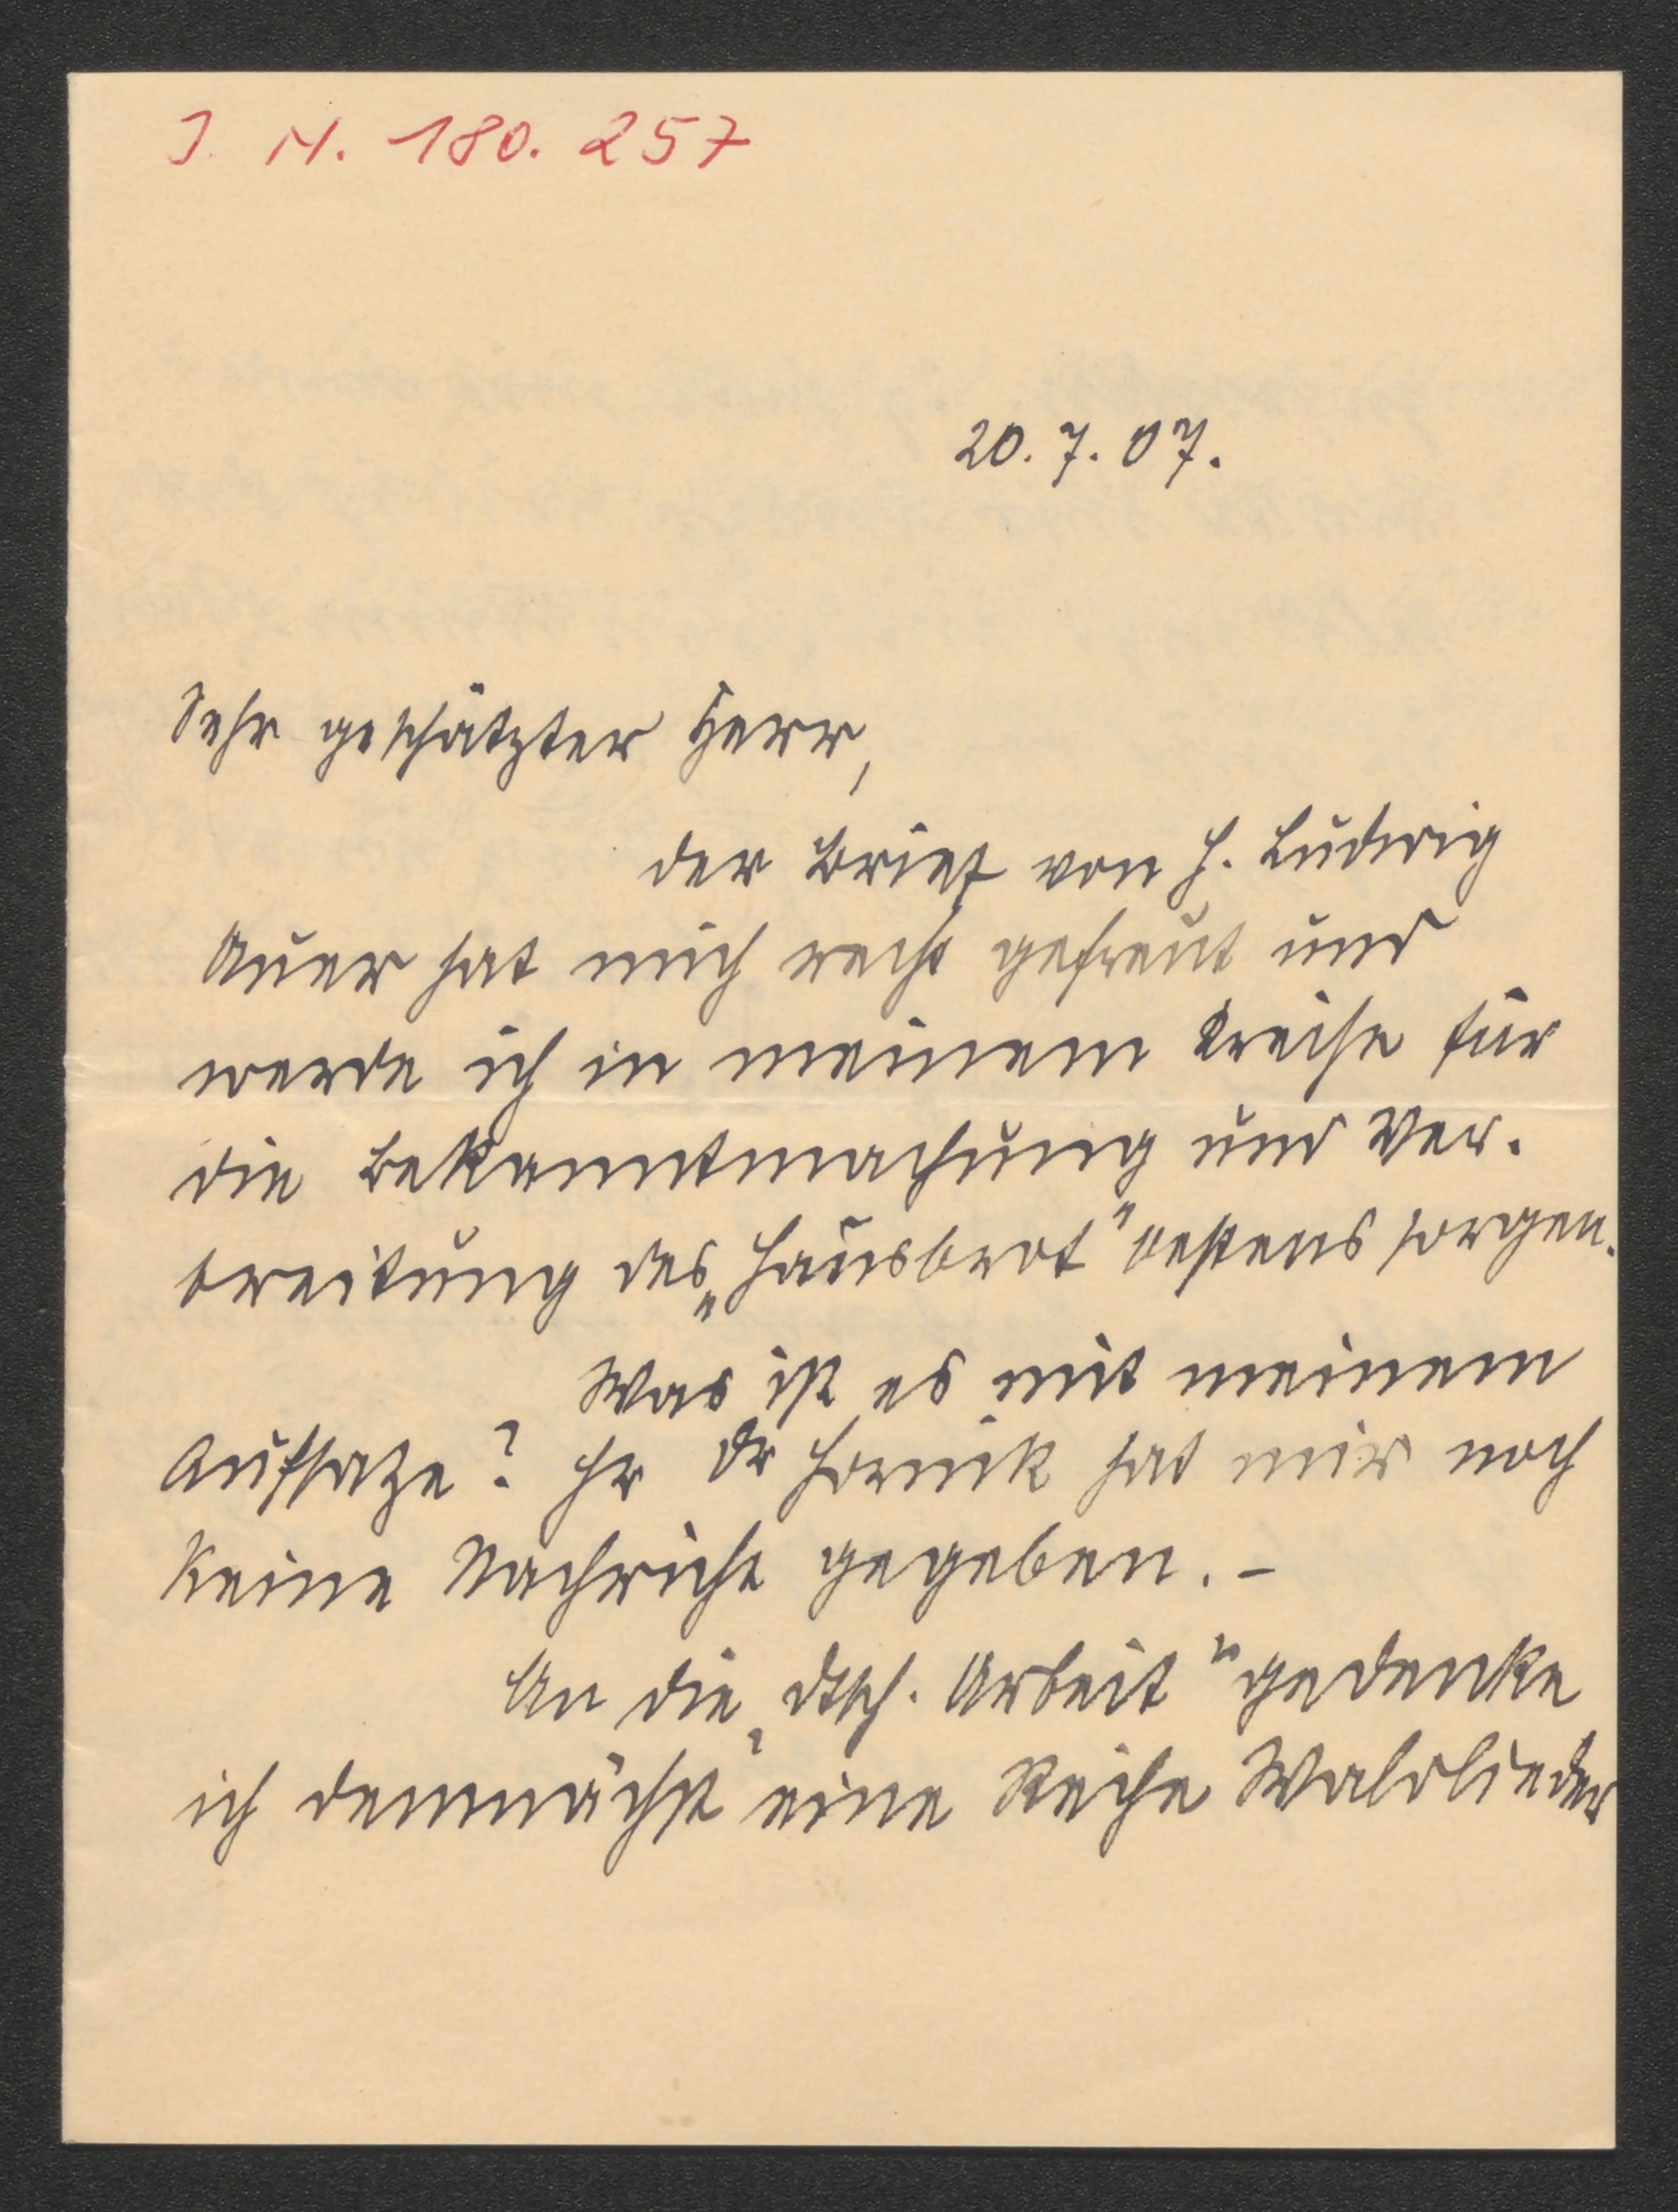 J. N. 180.257
20. 7. 07.
Sehr geschätzter Herr,
der Brief von H. Ludwig
Auer hat mich recht gefreut und
werde ich in meinem Kreise für
die Bekanntmachung und Ver-
breitung des „Hausbrot" bestens sorgen.
Was ist es mit meinem
Aufsatze? Hr Dr Hornik hat mir noch
keine Nachricht gegeben. –
An die „dtsch. Arbeit" gedenke
ich demnächst eine Reihe Waldlieder